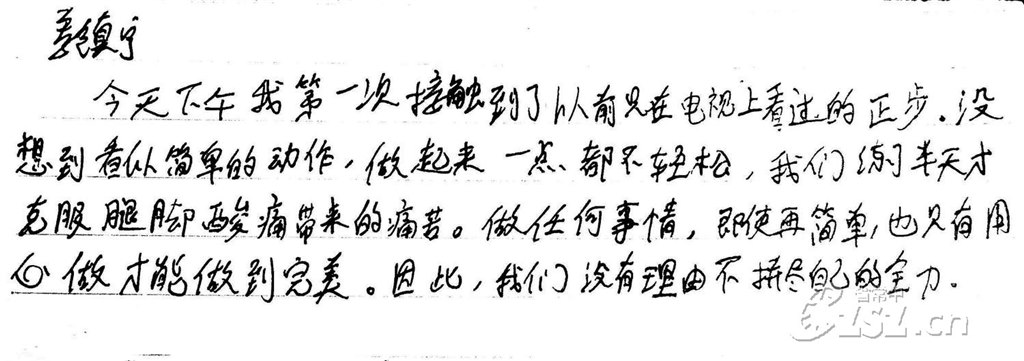 镇宁
今天下午我第一次接触到了以前只在电视上看过的正步.没
想到看似简单的动作,做起来一点都不轻松,我们练习半天才
克服腿脚酸痛带来的痛苦。做任何事情,即使再简单,也只有用
心做才能做到完美。因此,我们没有理由不拼尽自己的全力.
ZSZ.cn